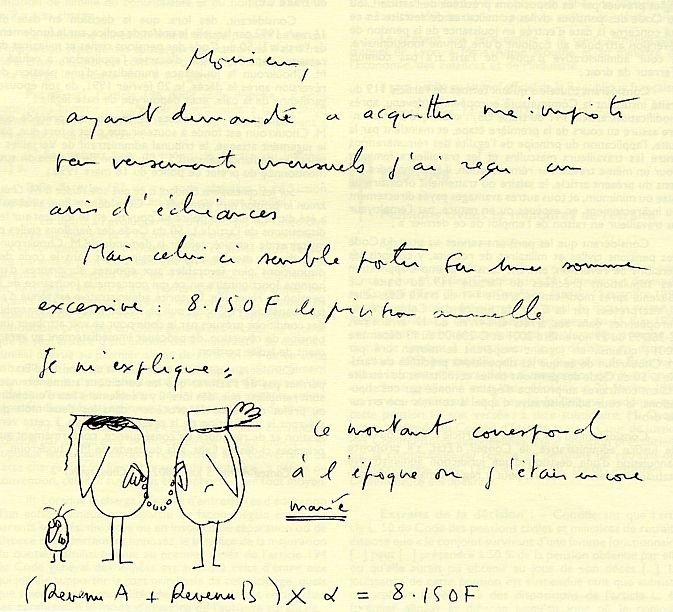 Monsieur,
ayant demandé a acquitter mes impots
par versements mensuels j'ai reçu un
avis d'échéances
Mais celui ci semble porter sur une somme
excessive : 8.150 F de ponction mensuelle
Je m'explique :
ce montant correspond
à l'époque ou j'étais encore
marié
(Revenu A + Revenu B) X α = 8.150F